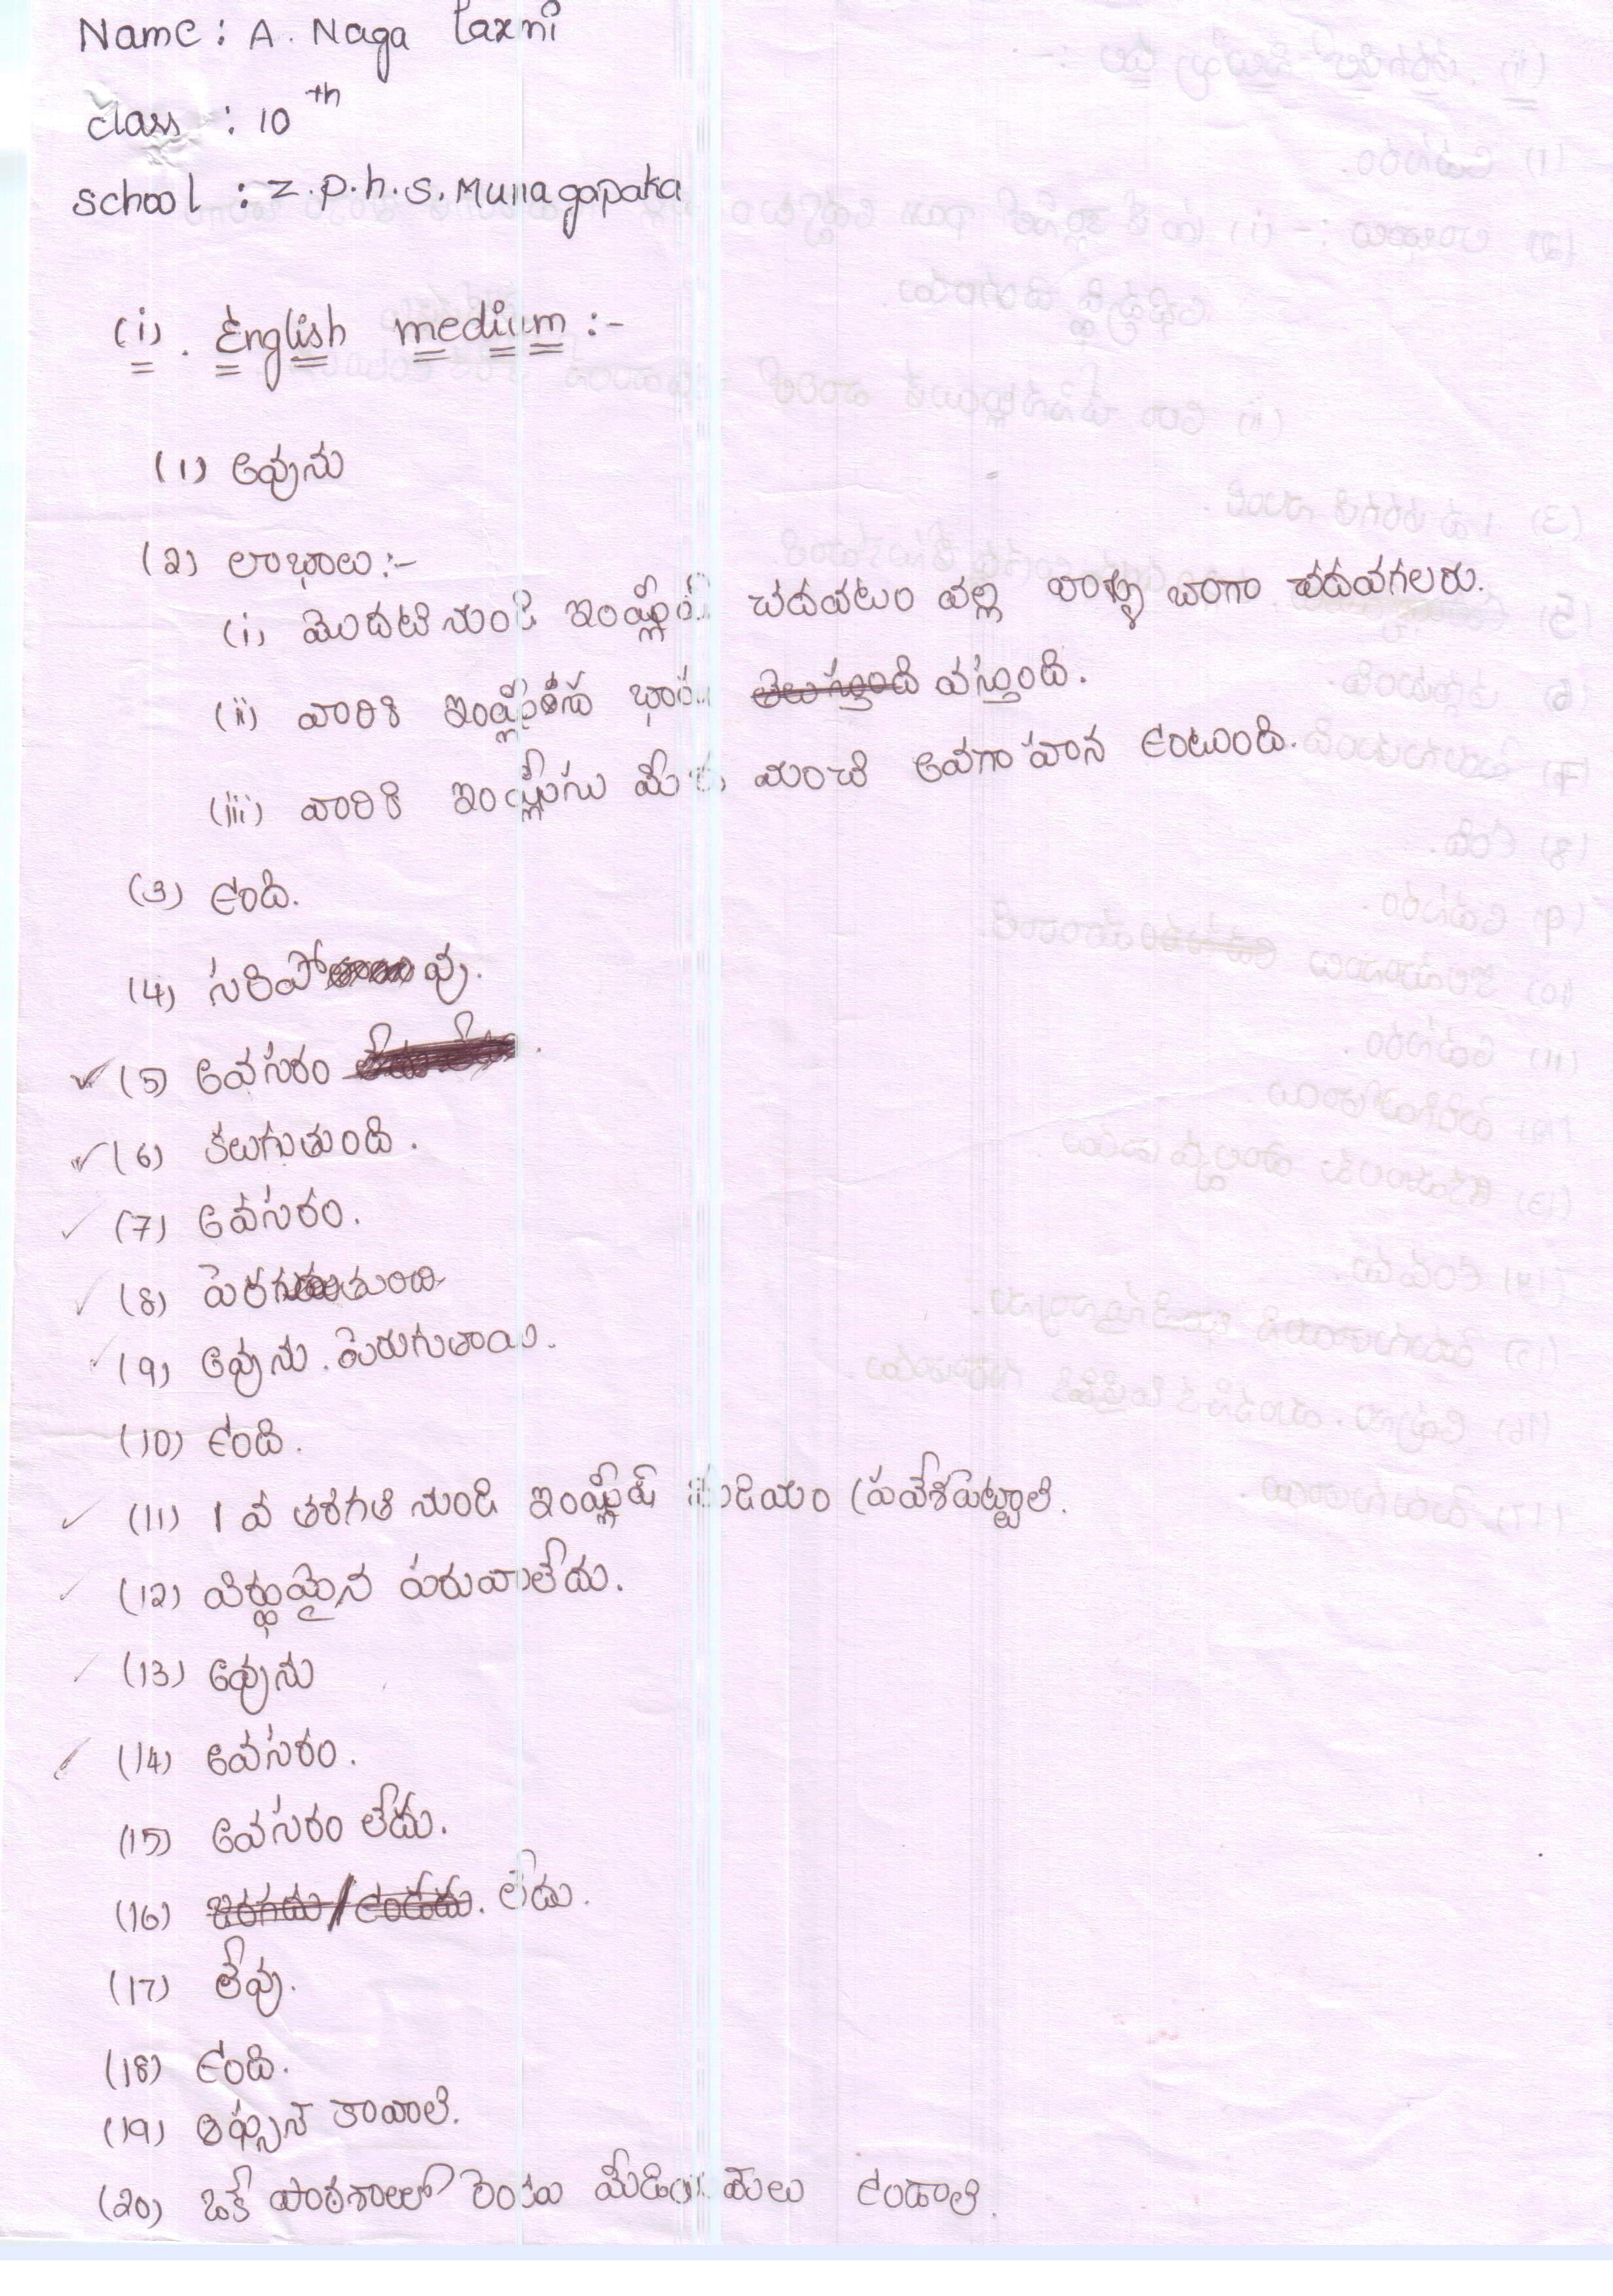 Name: A. Naga Laxmi
class : 10th
school : Z.P.h.s. Munagapaka
(i). English medium :-
(1) అవును
(2) లాభాలు:-
(i) మొదటి నుండి ఇంగ్లీష్ చదవటం వల్ల వాళ్ళు బాగా చదవగలరు.
(ii) వారికి ఇంగ్లీషు భాష వస్తుంది.
(iii) వారికి ఇంగ్లీషు మీద మంచి అవగాహన ఉంటుంది.
(3) ఉంది.
(4) సరిపోవు.
(5) అవసరం
(6) కలుగుతుంది.
(7) అవసరం.
(8) పెరగుతుంది
(9) అవును. పెరుగుతాయి.
(10) ఉంది.
(11) 1 వ తరగతి నుండి ఇంగ్లీష్ మీడియం ప్రవేశపెట్టాలి.
(12) పరువాలేదు.
(13) అవును
(14) అవసరం.
(15) అవసరం లేదు.
(16) లేదు.
(17) లేవు.
(18) ఉంది.
(19) ఆప్షన్ కావాలి.
(20) ఒకే పాఠశాలలో రెండు మీడియములు ఉండాలి.